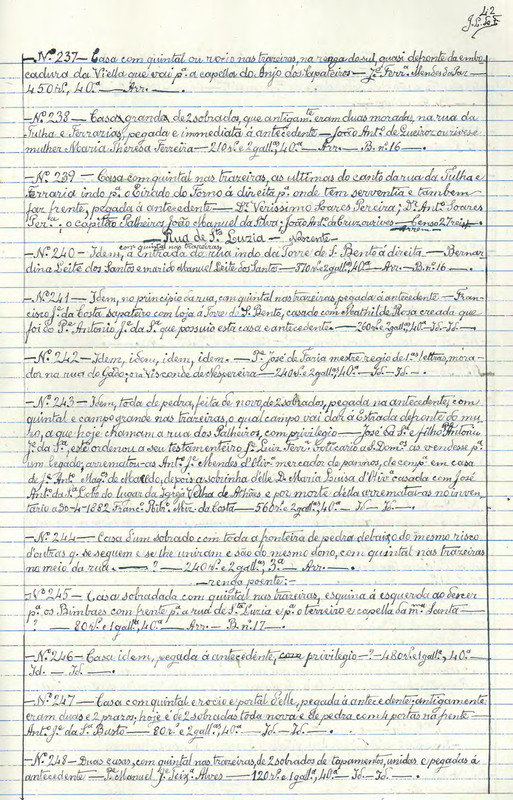 42
— Nº 237 — Casa com quintal ou rocio nas trazeiras, na renga do sul, quasi defronte da embo-
cadura da Viella que vai pª a capella do Anjo dos Sapateiros — Jº Ferrª Mendes da Paz —
450 rs, 40ª — Arr. —
— Nº 238 — Casas grandes de 2 sobrados, que antigamte eram duas moradas, na rua da
Tulha e Ferrarias, pegada e immediata á antecedente — João Antº de Queiroz ourives e
mulher Maria Thereza Ferreira — 210 rs e 2 gallªs, 40ª — Arr. — B. nº 16 —
— Nº 239 — Casa com quintal nas trazeiras, as ultimas do canto da rua da Tulha e
Ferraria indo pª o Eirado do Forno á direita pª onde têm serventia e tambem
faz frente, pegada á antecedente — Dr. Verissimo Soares Pereira; Dr. Antº Soares
Perª; o capitão Palheiro; João Manuel da Silva; João Antº da Cruz ourives — Censo 27 reis
Arr. —
— Rua de Stª Luzia — Nascente —
com quintal nas trazeiras,
— Nº 240 — Idem, á entrada da rua indo da Torre de S. Bento á direita. — Bernar-
dina Leite dos Santos e marido Manuel Leite dos Santos — 570 rs e 2 gallªs, 40ª — Arr. — B. nº 16 —
— Nº 241 — Idem, no principio da rua, com quintal nas trazeiras, pegada á antecedente — Fran-
cisco Jº da Costa sapateiro com loja á Torre de S. Bento, casado com Mathilde Rosa creada que
foi do Pº Antonio Jº da Sª que possuiu esta casa e antecedente. — 260 rs e 2 gallªs, 40ª — Id. — Id. —
— Nº 242 — Idem, idem, idem, idem. — Pº José de Faria mestre regio de 1ªs lettras, mora-
dor na rua do Gado; ora Visconde de Nespereira — 240 rs e 2 gallªs, 40ª — Id. — Id. —
— Nº 243 — Idem, toda de pedra, feita de novo, de 2 sobrados, pegada na antecedente, com
quintal e campo grande nas trazeiras, o qual campo vai dar á Estrada defronte do mu-
ro, a que hoje chamam a rua dos Palheiros, com privilegio — José da Sª e filho Antonio
Jº da Sª, este ordenou a seu testamenteiro Jº Luiz Ferrª Boticario a S. Domos as vendesse pª
um legado; arrematou-as Antº Jº Mendes d'Olivª mercador de pannos,
depois a sobrinha d'elle D. Maria Luisa d'Olivª casada com José
Antº da Sª do lugar da Igreja Velha de e por morte d'ella arrematou-as no inven-
tario a 30-4-1882 Francº Ribrº da Costa — 560 rs e 2 gallªs, 40ª — Id. — Id. —
— Nº 244 — Casa d'um sobrado com toda a fronteira de pedra debaixo do mesmo risco
d'outras q. se seguem e se lhe uniram e são do mesmo dono, com quintal nas trazeiras
no meio da rua. — ? — 240 rs e 2 gallªs, 3ª — Arr. —
— renga poente: —
— Nº 245 — Casa sobradada com quintal nas trazeiras, esquina á esquerda ao descer
pª os Bimbaes com frente pª a rua de Stª Luzia e pª o terreiro e capella da mª Santa —
? — 80 rs e 1 gallª, 40ª — Arr. — B. nº 17. —
— Nº 246 — Casa idem, pegada á antecedente, com privilegio — ? — 480 rs e 1 gallª, 40ª —
Id. — Id. —
— Nº 247 — Casa com quintal e rocio e portal d'elle, pegada á antecedente; antigamente
eram duas e 2 prazos; hoje é de 2 sobrados, toda nova e de pedra com 4 portas na frente —
Antº Jº da Sª Basto — 80 rs e 2 gallªs, 40ª — Id. — Id. —
— Nº 248 — Duas casas, com quintal nas trazeiras, de 2 sobrados de tapamento, unidas e pegadas á
antecedente — Pº Manuel Jº Teixª Alves — 120 rs e 1 gallª, 40ª — Id. — Id. —